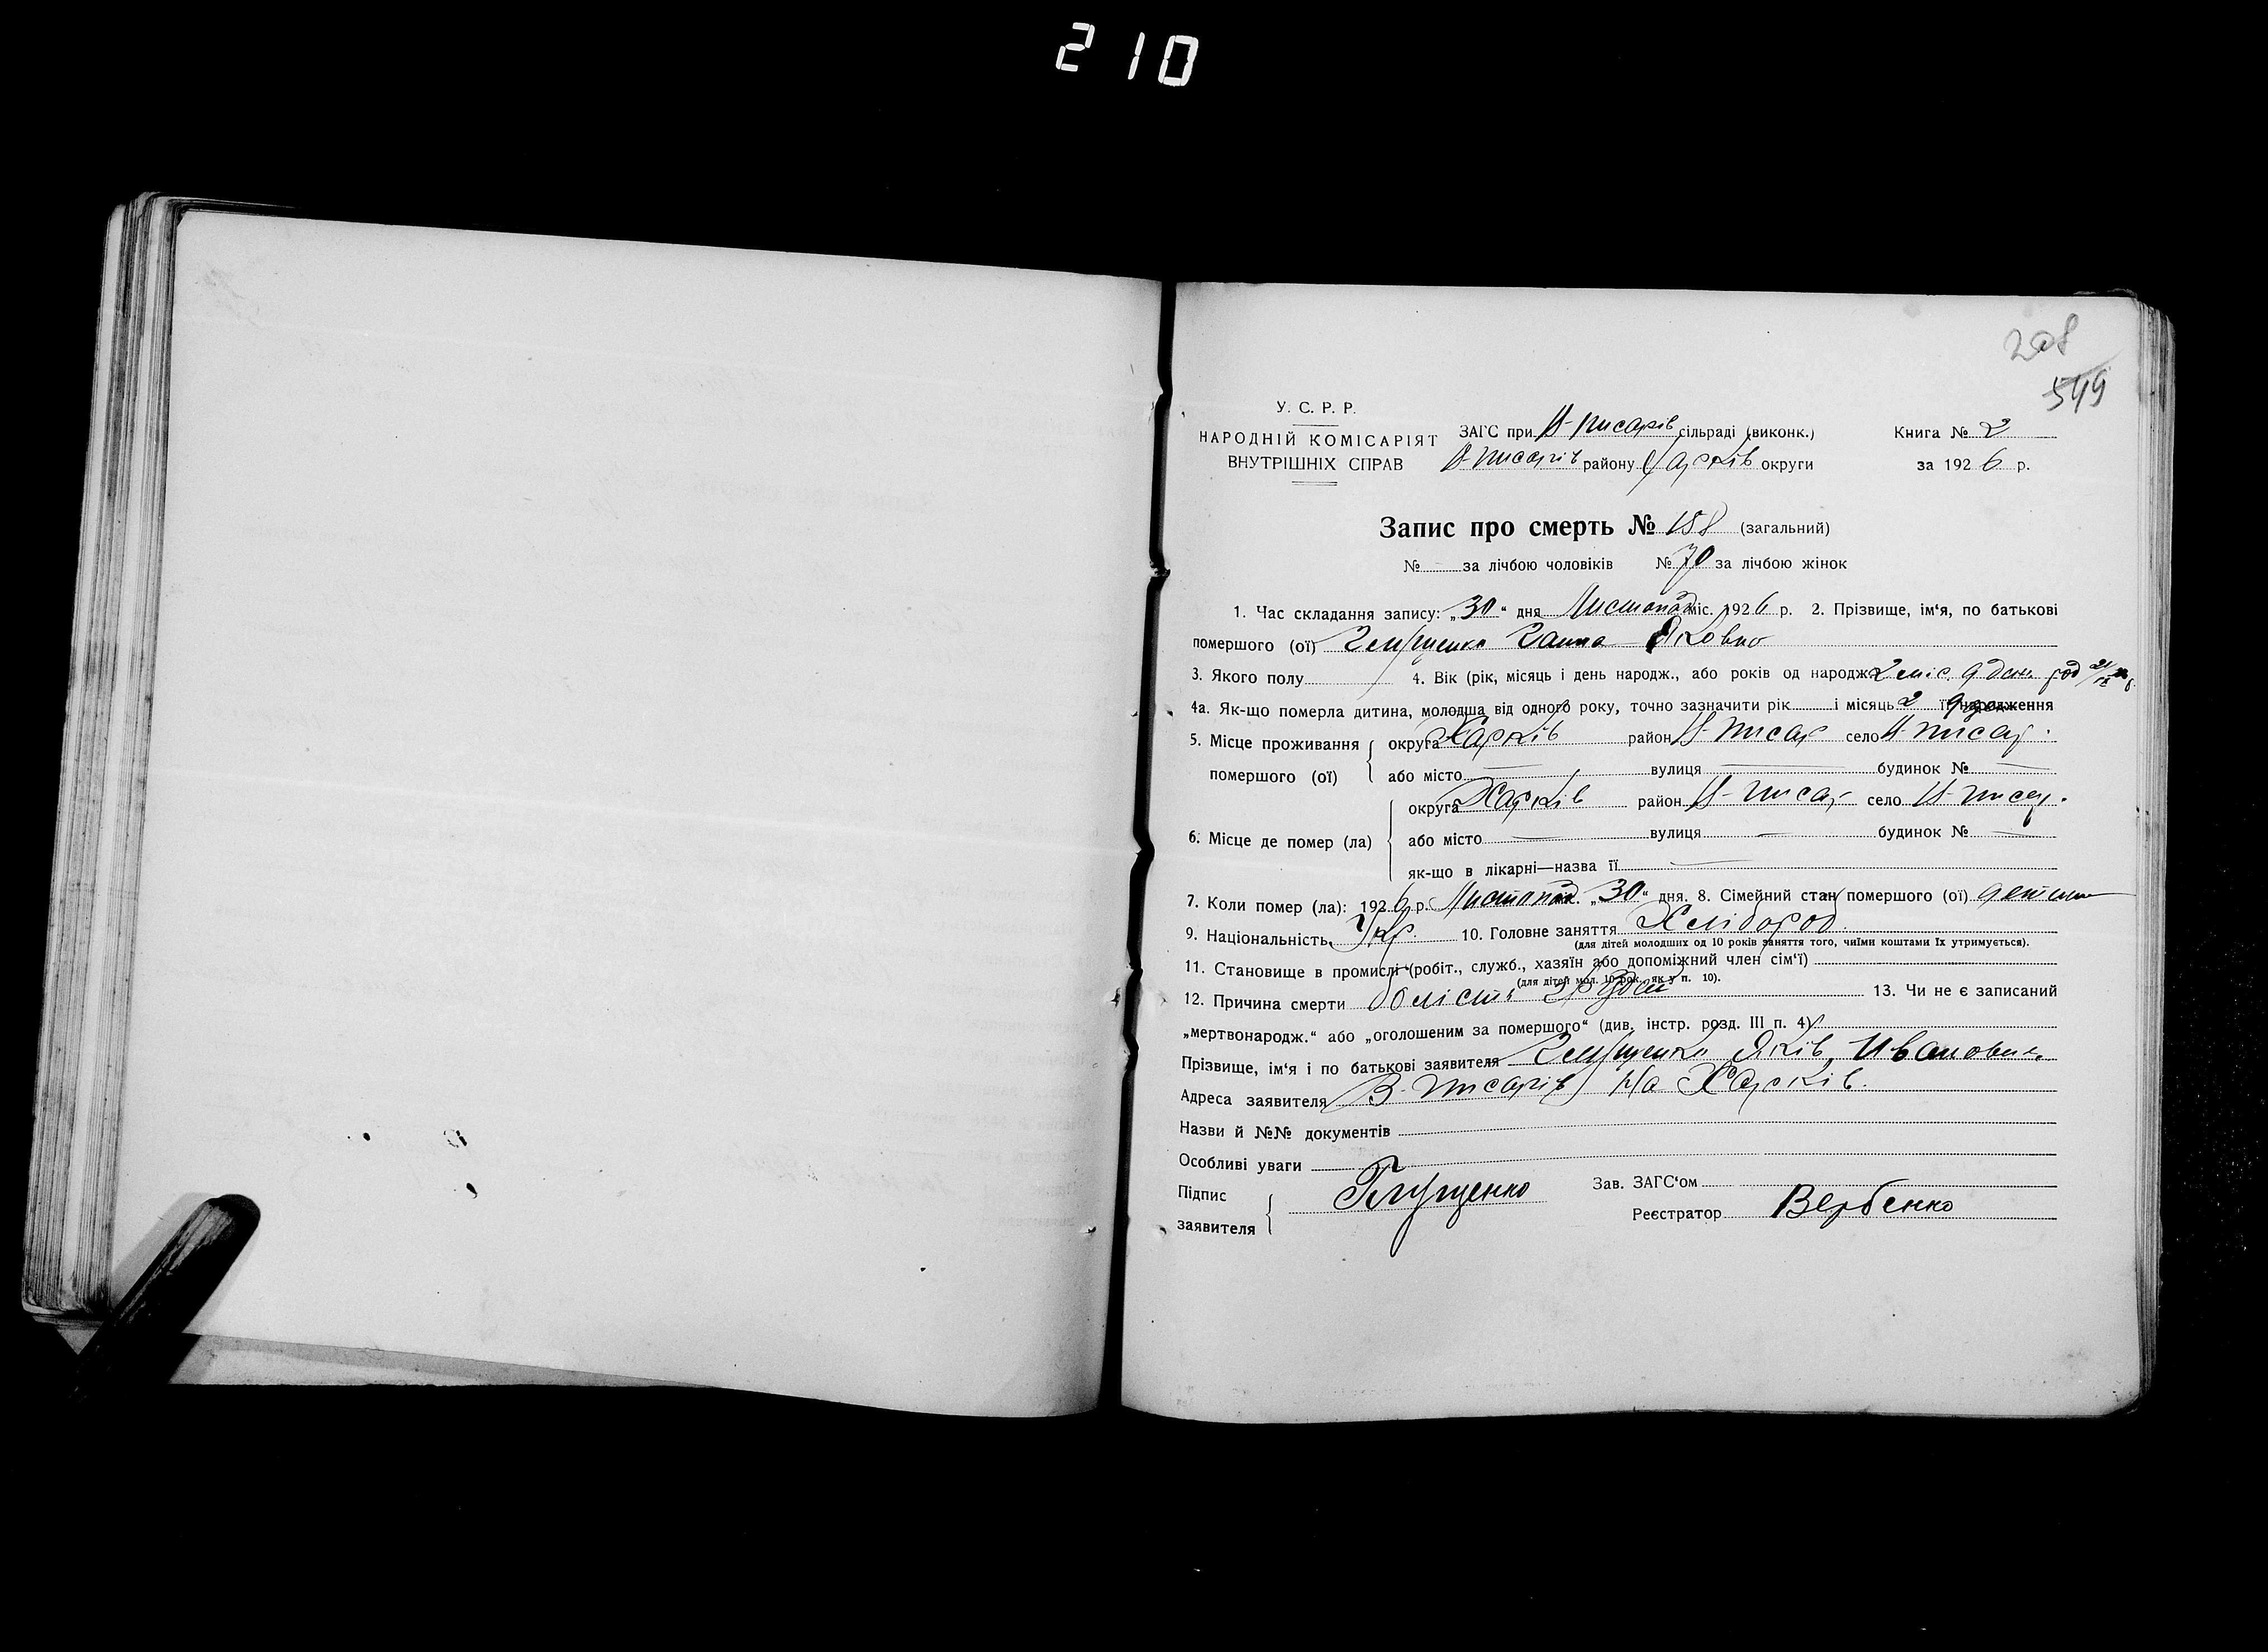 210
208
549
У. С. Р. Р.
НАРОДНІЙ КОМІСАРІЯТ
ВНУТРІШНІХ СПРАВ
ЗАГС при В-писарів сільраді (виконк.)
В-писарів району Харків округи
Книга № 2
за 1926 р.
Запис про смерть № 158 (загальний)
№ - за лічбою чоловіків № 70 за лічбою жінок
1. Час складання запису: „30“ дня Листопад міс. 1926 р. 2. Прізвище, ім‘я, по батькові
помершого (ої) Глущенко Ганна Яковно
3. Якого полу 4. Вік (рік, місяць і день народж., або років од народж. 2 міс. 9 день род 21/IX
4а. Як-що померла дитина, молодша від одного року, точно зазначити рік і місяць 2 її народження
5. Місце проживання помершого (ої) округа Харків район В-писар село В-писар.
або місто — вулиця — будинок № —
6. Місце де помер (ла) округа Харків район В-писар село В-писар.
або місто — вулиця — будинок № —
як-що в лікарні—назва її —
7. Коли помер (ла): 1926 р. Листопад „30“ дня. 8. Сімейний стан помершого (ої)
9. Національність Укр. 10. Головне заняття Хлібороб.
(для дітей молодших од 10 років заняття того, чиїми коштами їх утримується).
11. Становище в промислі (робіт., служб., хазяїн або допоміжний член сім‘ї)
(для дітей мол. 10 рок., як у п. 10).
12. Причина смерти болість 13. Чи не є записаний
„мертвонародж.“ або „оголошеним за помершого“ (див. інстр. розд. III п. 4)
Прізвище, ім‘я і по батькові заявителя Глущенко Яків Иванович
Адреса заявителя В-писарів на Харків.
Назви й №№ документів
Особливі уваги
Підпис заявителя Глущенко
Зав. ЗАГС‘ом
Реєстратор Вербенко